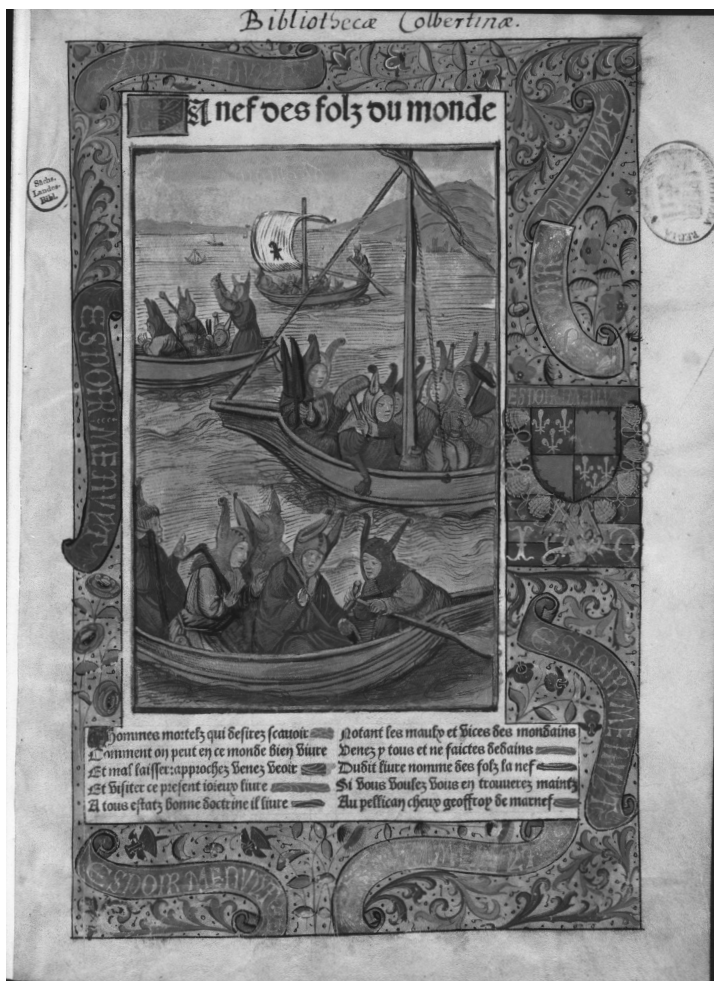 Bibliothecæ Colbertinæ.
La nef des folz du monde
Sächs.
Landes-
Bibl.
ESPOIR·ME·NUYT
O hommes mortelz qui desirez scauoir
Comment on peut en ce monde bien viure
Et mal laisser: approchez venez veoir
Et visiter ce present ioieux liure
A tous estatz bonne doctrine il liure
Notant les maulx et vices des mondains
Venez y tous et ne faictes dedains
Dudit liure nomme des folz la nef
Si vous voulez vous en trouuerez maintz
Au pellican cheux geoffroy de marnef
ESPOIR·ME·NUYT
ESPOIR·ME·NUYT